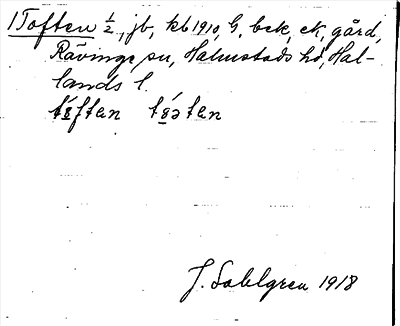 1 Toften ½, jb, kb 1910, G, bek, ek, gård,
Rävinge sn, Halmstads hd, Hal-
lands l.
J. Sahlgren 1918